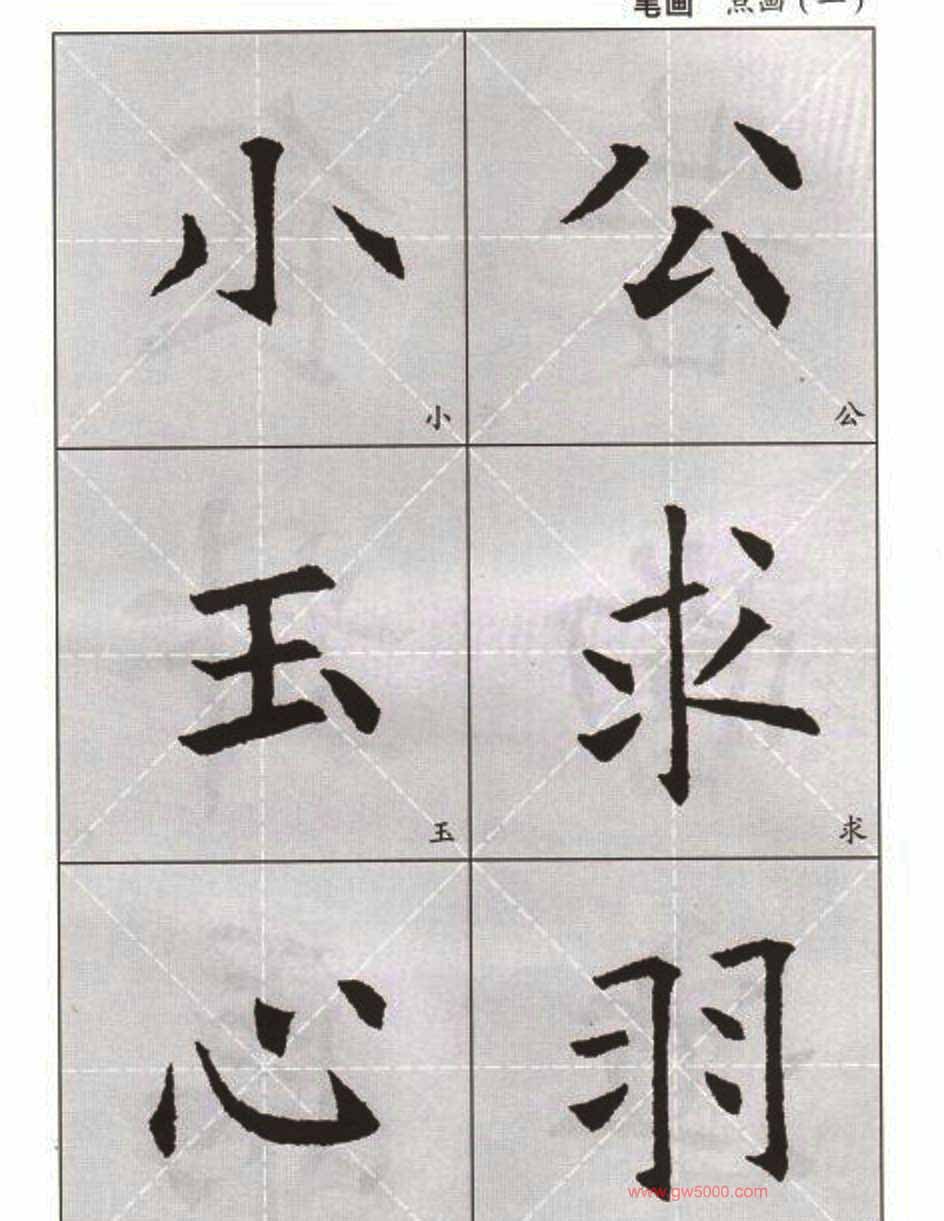 笔画 点画(一)
小 公
小 公
玉 求
玉 求
心 羽
www.gw5000.com